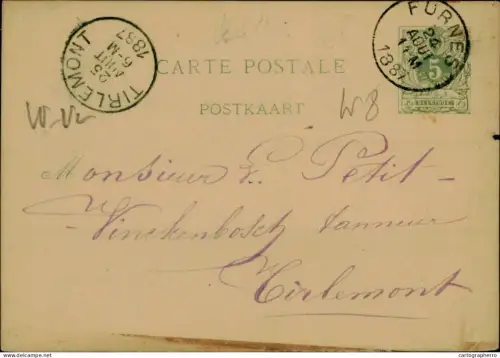 FURNES
24
AOUT
11-M
1887
TIRLEMONT
25
AOUT
6-M
1887
CARTE POSTALE
POSTKAART
5
BELGIQUE
W8
Monsieur L. Petit-
Vinckenbosch tanneur
Tirlemont
cartographerro